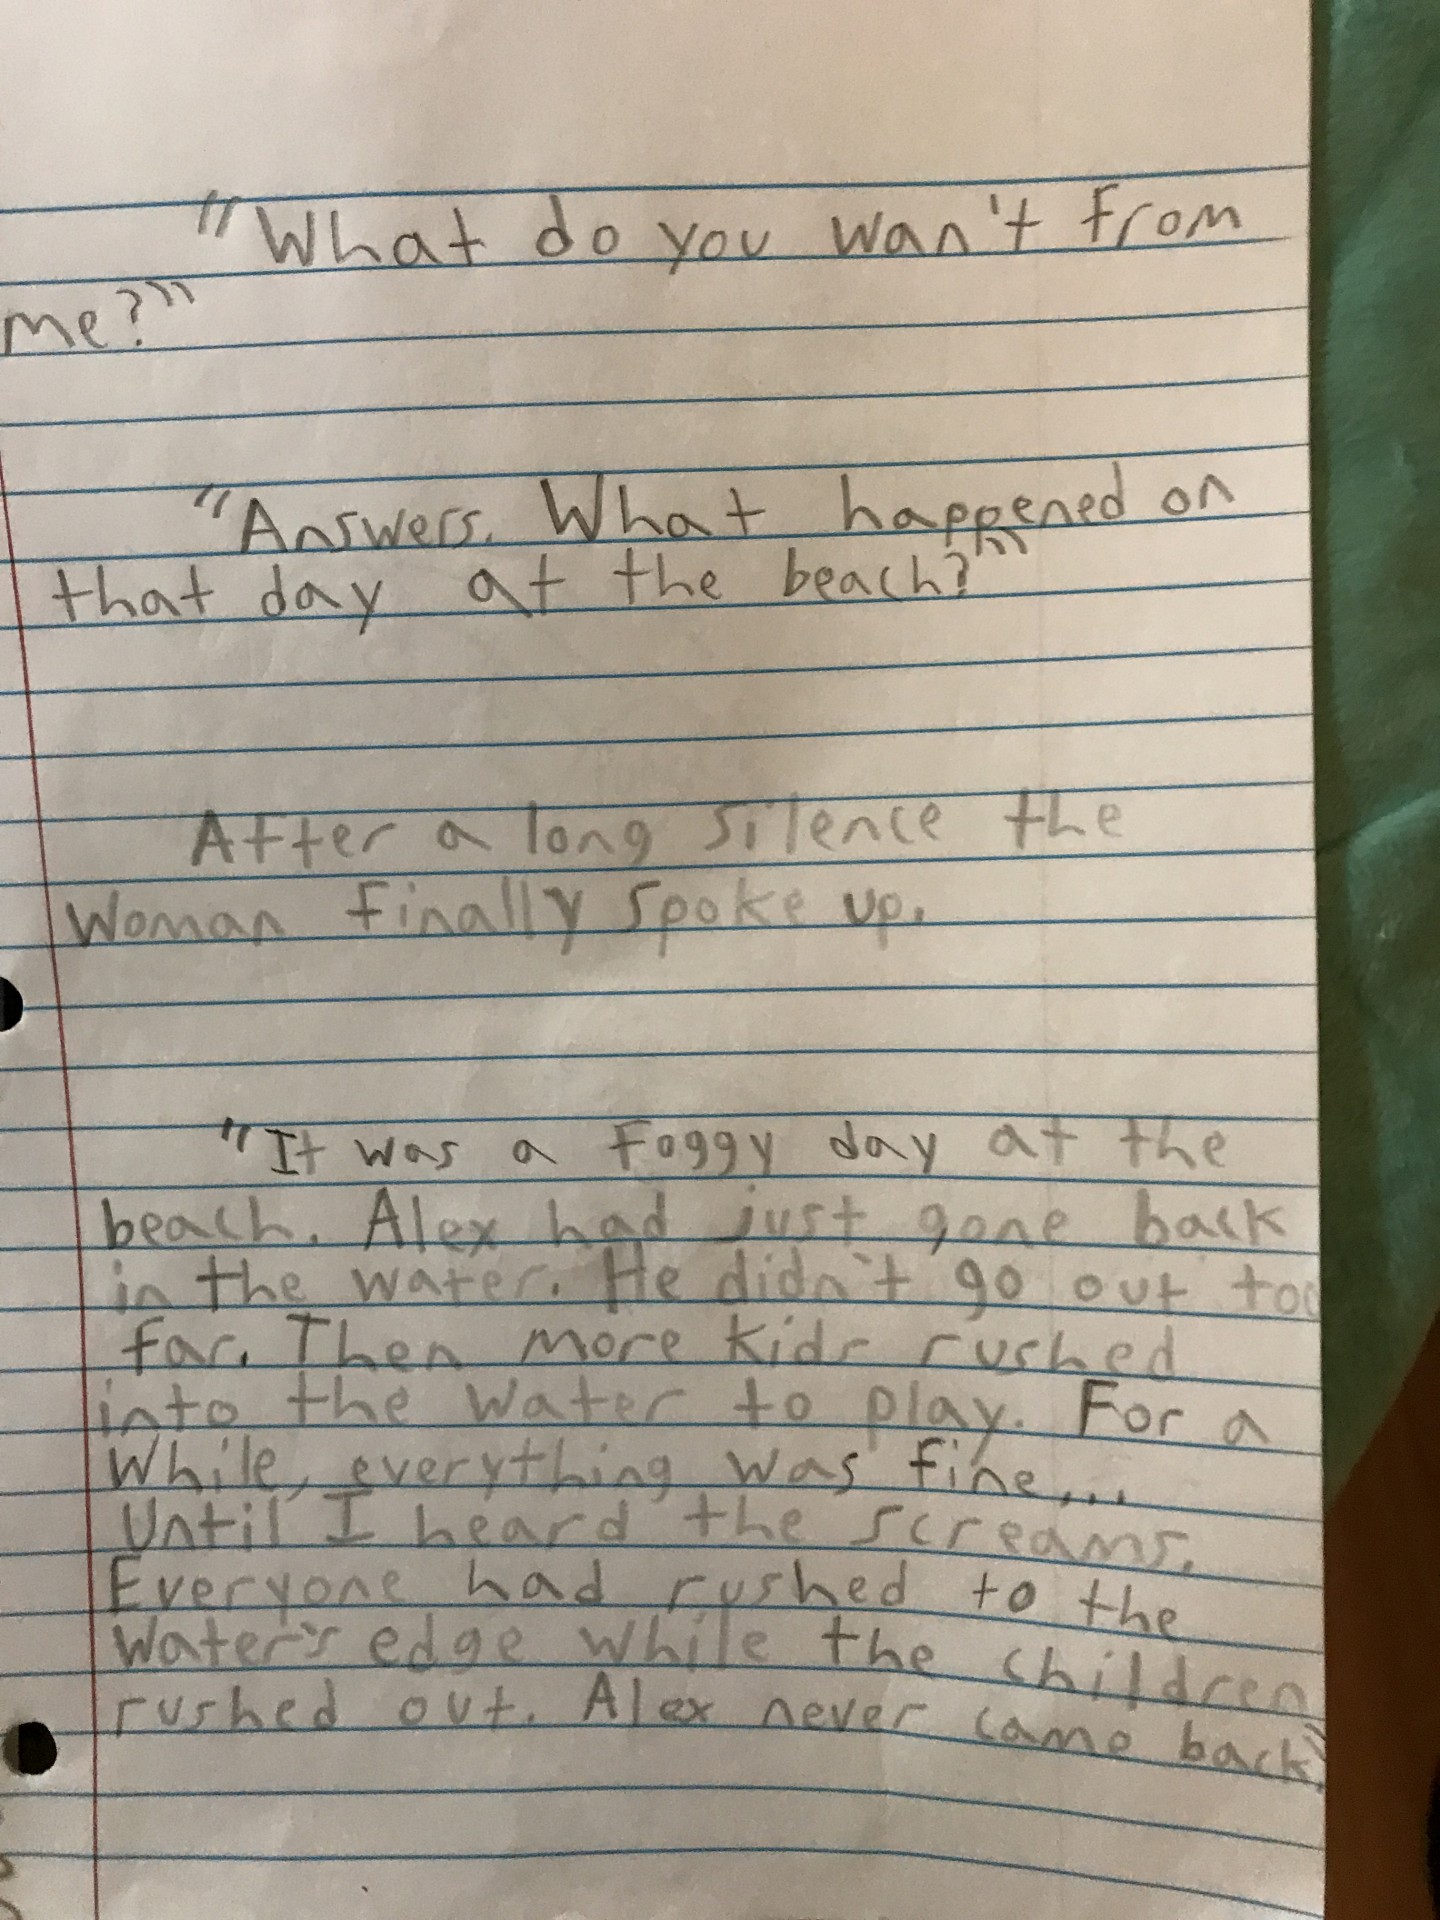 "What do you wan't from
me?"
"Answers. What happened on
that day at the beach?"
After a long silence the
woman finally spoke up.
"It was a foggy day at the
beach. Alex had just gone back
in the water. He didn't go out too
far. Then more kids rushed
into the water to play. For a
while, everything was fine...
Until I heard the screams.
Everyone had rushed to the
water's edge while the children
rushed out. Alex never came back."